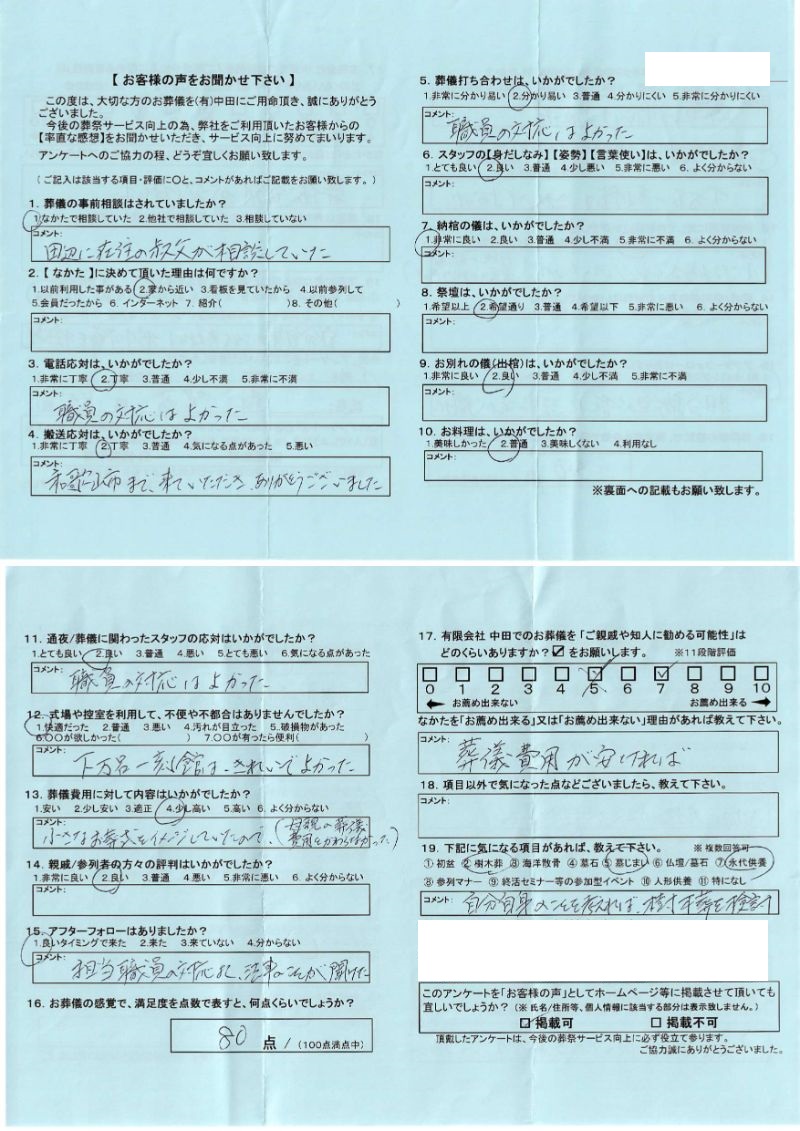 【 お客様の声をお聞かせ下さい 】
この度は、大切な方のお葬儀を(有)中田にご用命頂き、誠にありがとう
ございました。
今後の葬祭サービス向上の為、弊社をご利用頂いたお客様からの
【率直な感想】をお聞かせいただき、サービス向上に努めてまいります。
アンケートへのご協力の程、どうぞ宜しくお願い致します。
（ ご記入は該当する項目・評価に○と、コメントがあればご記載をお願い致します。）
1. 葬儀の事前相談はされていましたか？
1.なかたで相談していた 2.他社で相談していた 3.相談していない
コメント：
田辺に在住の叔父が相談していた
2.【 なかた 】に決めて頂いた理由は何ですか？
1.以前利用した事がある 2.家から近い 3.看板を見ていたから 4.以前参列して
5.会員だったから 6. インターネット 7. 紹介（ ）8. その他（ ）
コメント：
3. 電話応対は、いかがでしたか？
1.非常に丁寧 2.丁寧 3.普通 4.少し不満 5.非常に不満
コメント：
職員の対応はよかった
4. 搬送応対は、いかがでしたか？
1.非常に丁寧 2.丁寧 3.普通 4.気になる点があった 5.悪い
コメント：
和歌山市まで、来ていただき、ありがとうございました
5. 葬儀打ち合わせは、いかがでしたか？
1.非常に分かり易い 2.分かり易い 3.普通 4.分かりにくい 5.非常に分かりにくい
コメント：
職員の対応はよかった
6. スタッフの【身だしなみ】【姿勢】【言葉使い】は、いかがでしたか？
1.とても良い 2.良い 3.普通 4.少し悪い 5.非常に悪い 6. よく分からない
コメント：
7. 納棺の儀は、いかがでしたか？
1.非常に良い 2.良い 3.普通 4.少し不満 5.非常に不満 6. よく分からない
コメント：
8. 祭壇は、いかがでしたか？
1.希望以上 2.希望通り 3.普通 4.希望以下 5.非常に悪い 6. よく分からない
コメント：
9. お別れの儀（出棺）は、いかがでしたか？
1.非常に良い 2.良い 3.普通 4.少し不満 5.非常に不満
コメント：
10. お料理は、いかがでしたか？
1.美味しかった 2.普通 3.美味しくない 4.利用なし
コメント：
※裏面への記載もお願い致します。
11. 通夜/葬儀に関わったスタッフの応対はいかがでしたか？
1.とても良い 2.良い 3.普通 4.悪い 5.とても悪い 6.気になる点があった
コメント：
職員の対応はよかった
12. 式場や控室を利用して、不便や不都合はありませんでしたか？
1.快適だった 2.普通 3.悪い 4.汚れが目立った 5.破損物があった
6.〇〇が欲しかった（ ） 7.〇〇が有ったら便利（ ）
コメント：
下万呂一刻館は、きれいでよかった
13. 葬儀費用に対して内容はいかがでしたか？
1.安い 2.少し安い 3.適正 4.少し高い 5.高い 6. よく分からない
コメント：
小さなお葬式をイメージしていたので、（母親の葬儀費用とかわらなかった）
14. 親戚/参列者の方々の評判はいかがでしたか？
1.非常に良い 2.良い 3.普通 4.悪い 5.非常に悪い 6. よく分からない
コメント：
15. アフターフォローはありましたか？
1.良いタイミングで来た 2.来た 3.来ていない 4.分からない
コメント：
担当職員の対応よく、法事のことが聞けた
16. お葬儀の感覚で、満足度を点数で表すと、何点くらいでしょうか？
80 点 / （100点満点中）
17. 有限会社 中田でのお葬儀を「ご親戚や知人に勧める可能性」は
どのくらいありますか？☑をお願いします。 ※11段階評価
0 1 2 3 4 5 6 7 8 9 10
お薦め出来ない お薦め出来る
なかたを「お薦め出来る」又は「お薦め出来ない」理由があれば教えて下さい。
コメント：
葬儀費用が安ければ
18. 項目以外で気になった点などございましたら、教えて下さい。
コメント：
19. 下記に気になる項目があれば、教えて下さい。 ※ 複数回答可
① 初盆 ② 樹木葬 ③ 海洋散骨 ④ 墓石 ⑤ 墓じまい ⑥ 仏壇/墓石 ⑦ 永代供養
⑧ 参列マナー ⑨ 終活セミナー等の参加型イベント ⑩ 人形供養 ⑪ 特になし
コメント：
自分自身のことを考えれば、樹木葬を検討
このアンケートを「お客様の声」としてホームページ等に掲載させて頂いても
宜しいでしょうか？（※ 氏名/住所等、個人情報に該当する部分は表示致しません。）
☑ 掲載可 □ 掲載不可
頂戴したアンケートは、今後の葬祭サービス向上に必ず役立て参ります。
ご協力誠にありがとうございました。